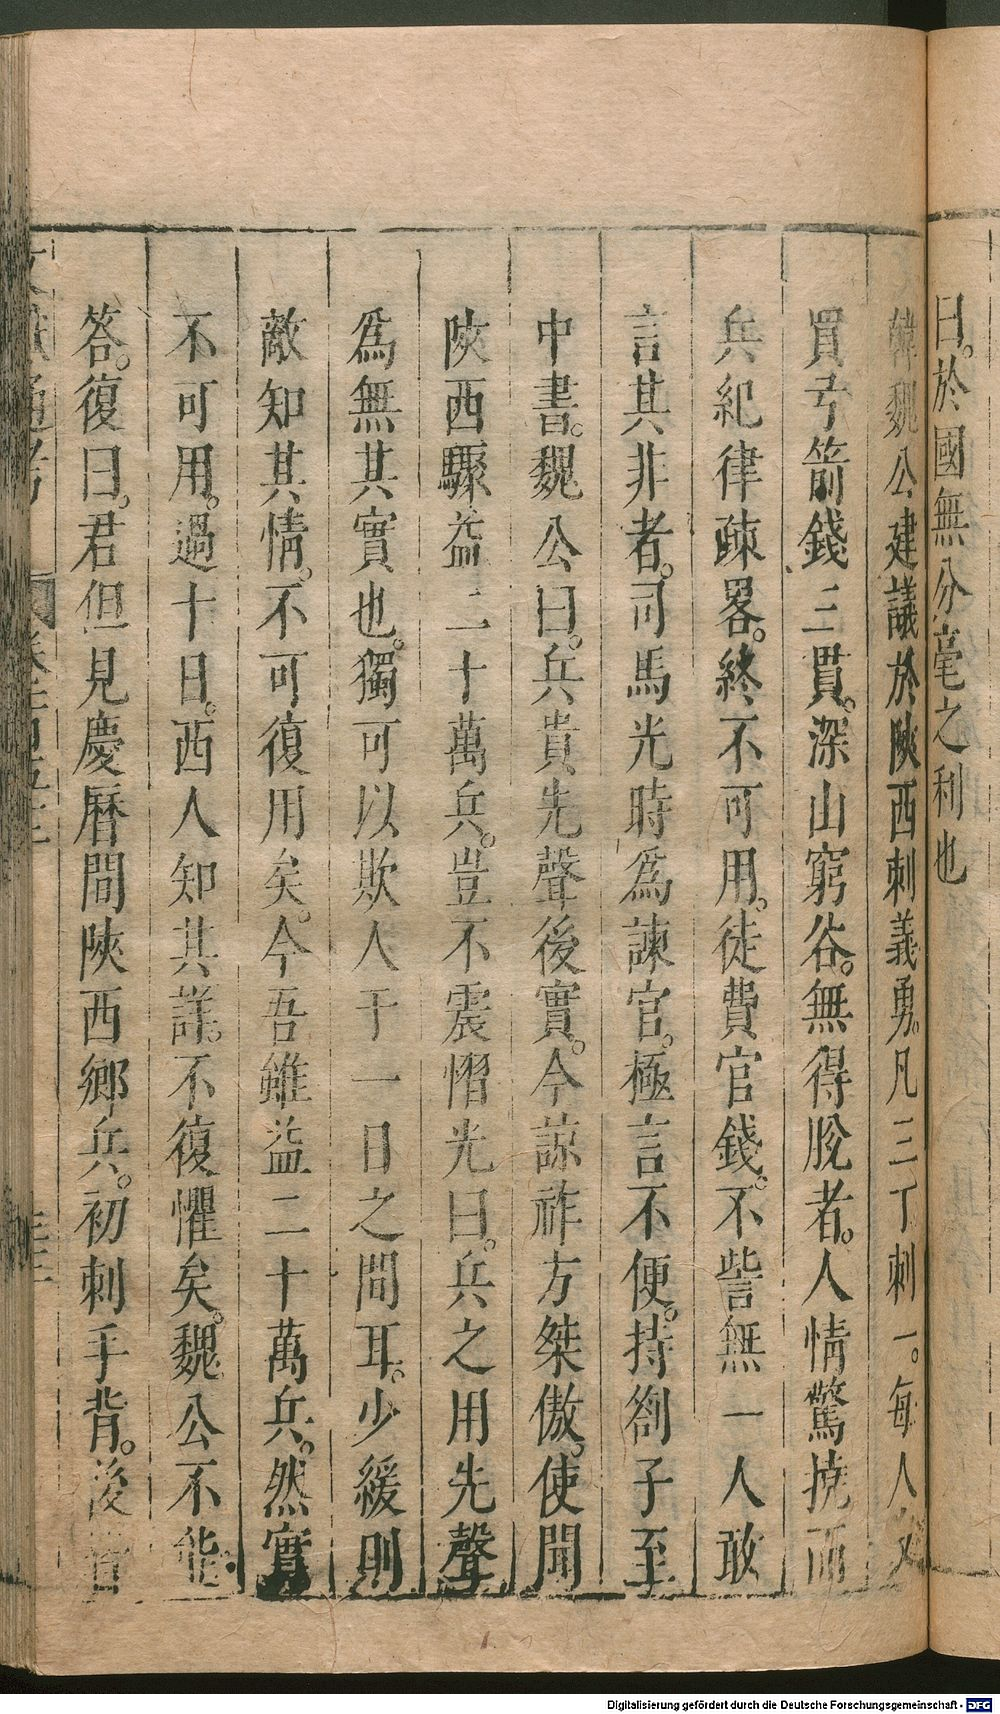 曰。於國無分毫之利也
韓魏公建議於陝西刺義勇。凡三丁刺一。每人支
買弓箭錢三貫。深山窮谷。無得脫者。人情驚撓而
兵紀律疎畧。終不可用。徒費官錢。不訾無一人敢
言其非者。司馬光時為諫官。極言不便。持劄子至
中書。魏公曰。兵貴先聲後實。今諒祚方桀傲。使聞
陝西驟益二十萬兵。豈不震慴光曰。兵之用先聲
為無其實也。獨可以欺人于一日之間耳。少緩則
敵知其情。不可復用矣。今吾雖益二十萬兵。然實
不可用。過十日。西人知其詳。不復懼矣。魏公不能
答。復曰。君但見慶曆間陝西鄉兵。初刺手背。後皆
文獻通考
Digitalisierung gefördert durch die Deutsche Forschungsgemeinschaft - DFG